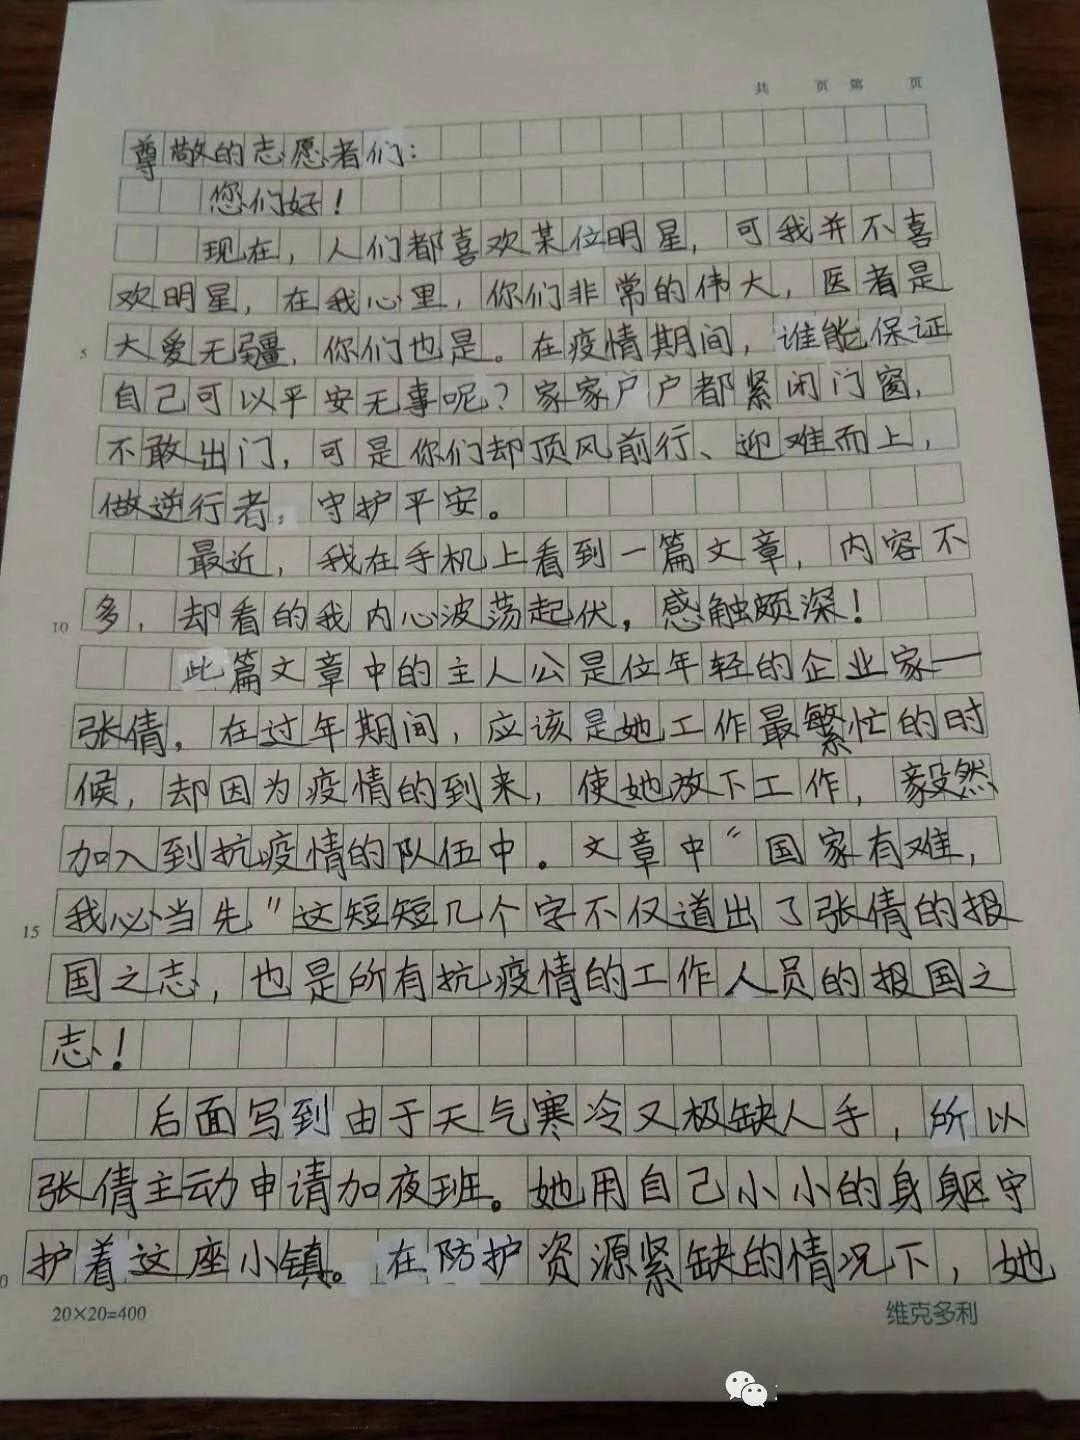 共 页 第 页
尊敬的志愿者们:
您们好!
现在,人们都喜欢某位明星,可我并不喜
欢明星,在我心里,你们非常的伟大,医者是
5 大爱无疆,你们也是。在疫情期间,谁能保证
自己可以平安无事呢?家家户户都紧闭门窗,
不敢出门,可是你们却顶风前行、迎难而上,
做逆行者,守护平安。
最近,我在手机上看到一篇文章,内容不
10 多,却看的我内心波荡起伏,感触颇深!
此篇文章中的主人公是位年轻的企业家一
张倩,在过年期间,应该是她工作最繁忙的时
候,却因为疫情的到来,使她放下工作,毅然
加入到抗疫情的队伍中。文章中“国家有难,
15 我必当先”这短短几个字不仅道出了张倩的报
国之志,也是所有抗疫情的工作人员的报国之
志!
后面写到由于天气寒冷又极缺人手,所以
张倩主动申请加夜班。她用自己小小的身躯守
0 护着这座小镇。在防护资源紧缺的情况下,她
20×20=400 维克多利